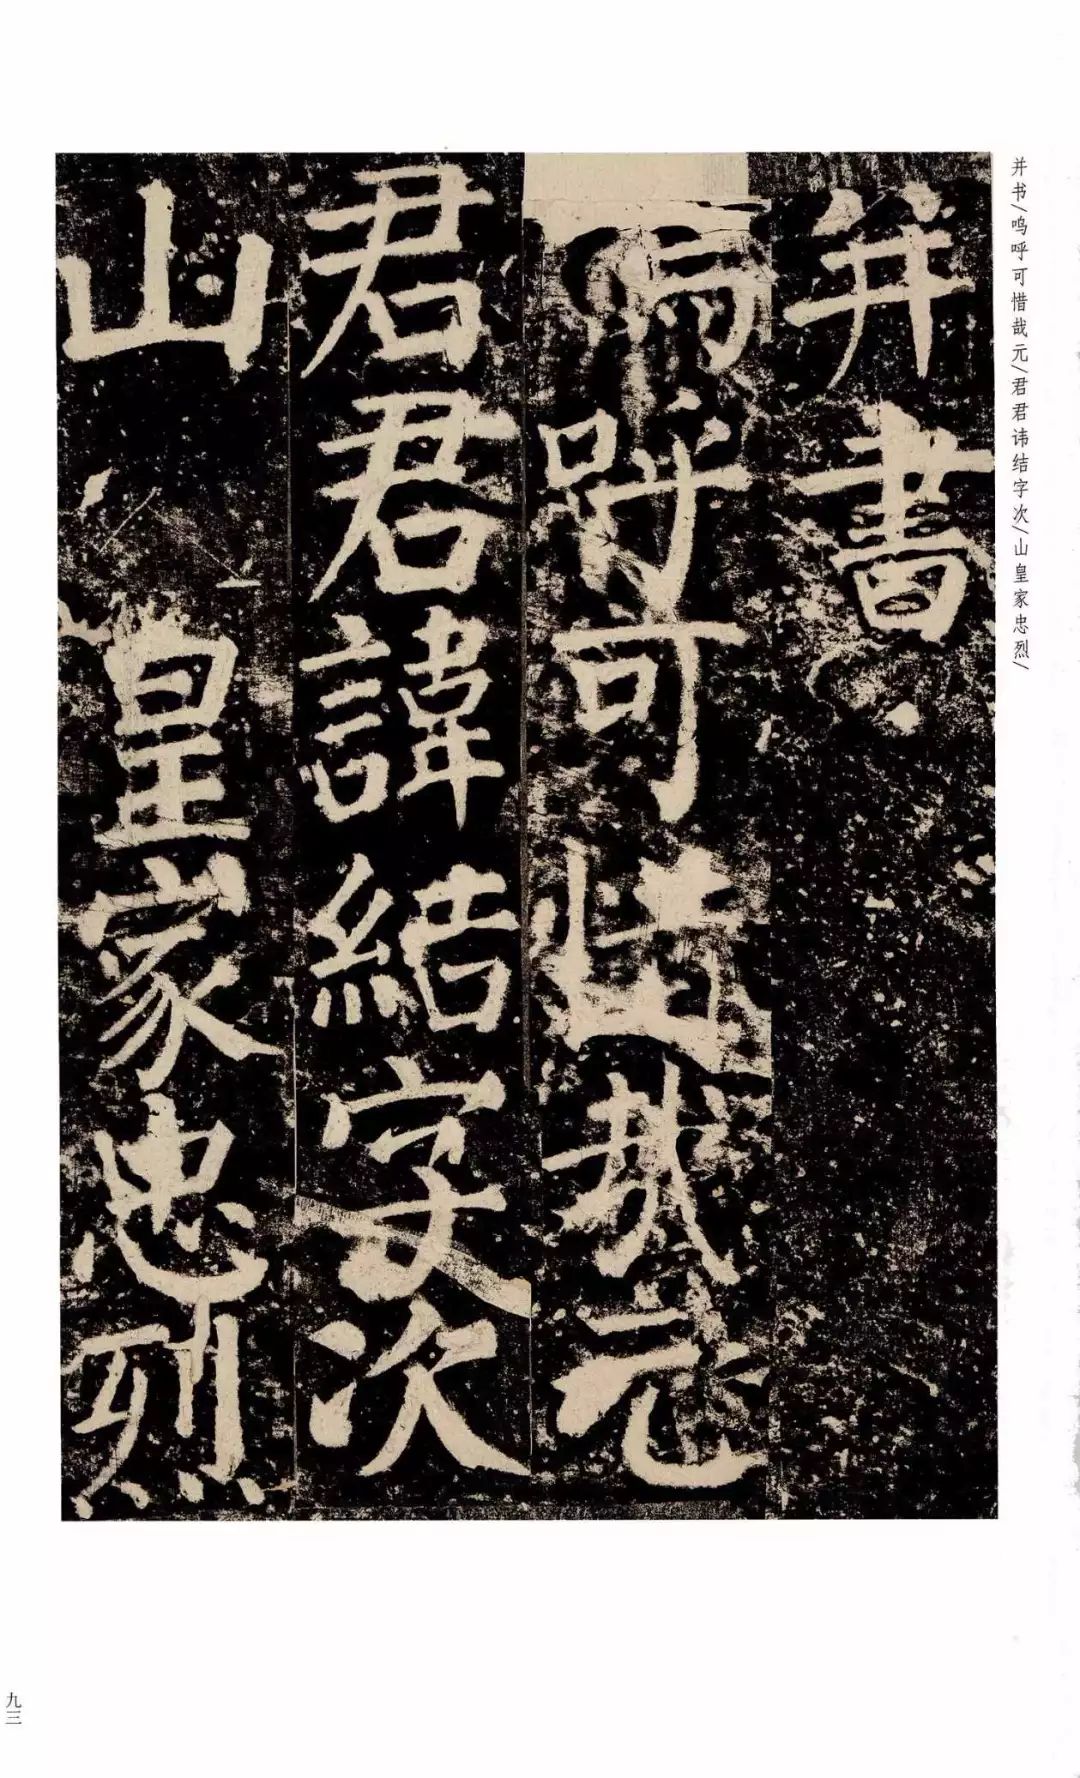 并书/呜呼可惜哉元/君君讳结字次/山皇家忠烈/
并書
嗚呼可惜哉元
君君諱結字次
山皇家忠烈
九三